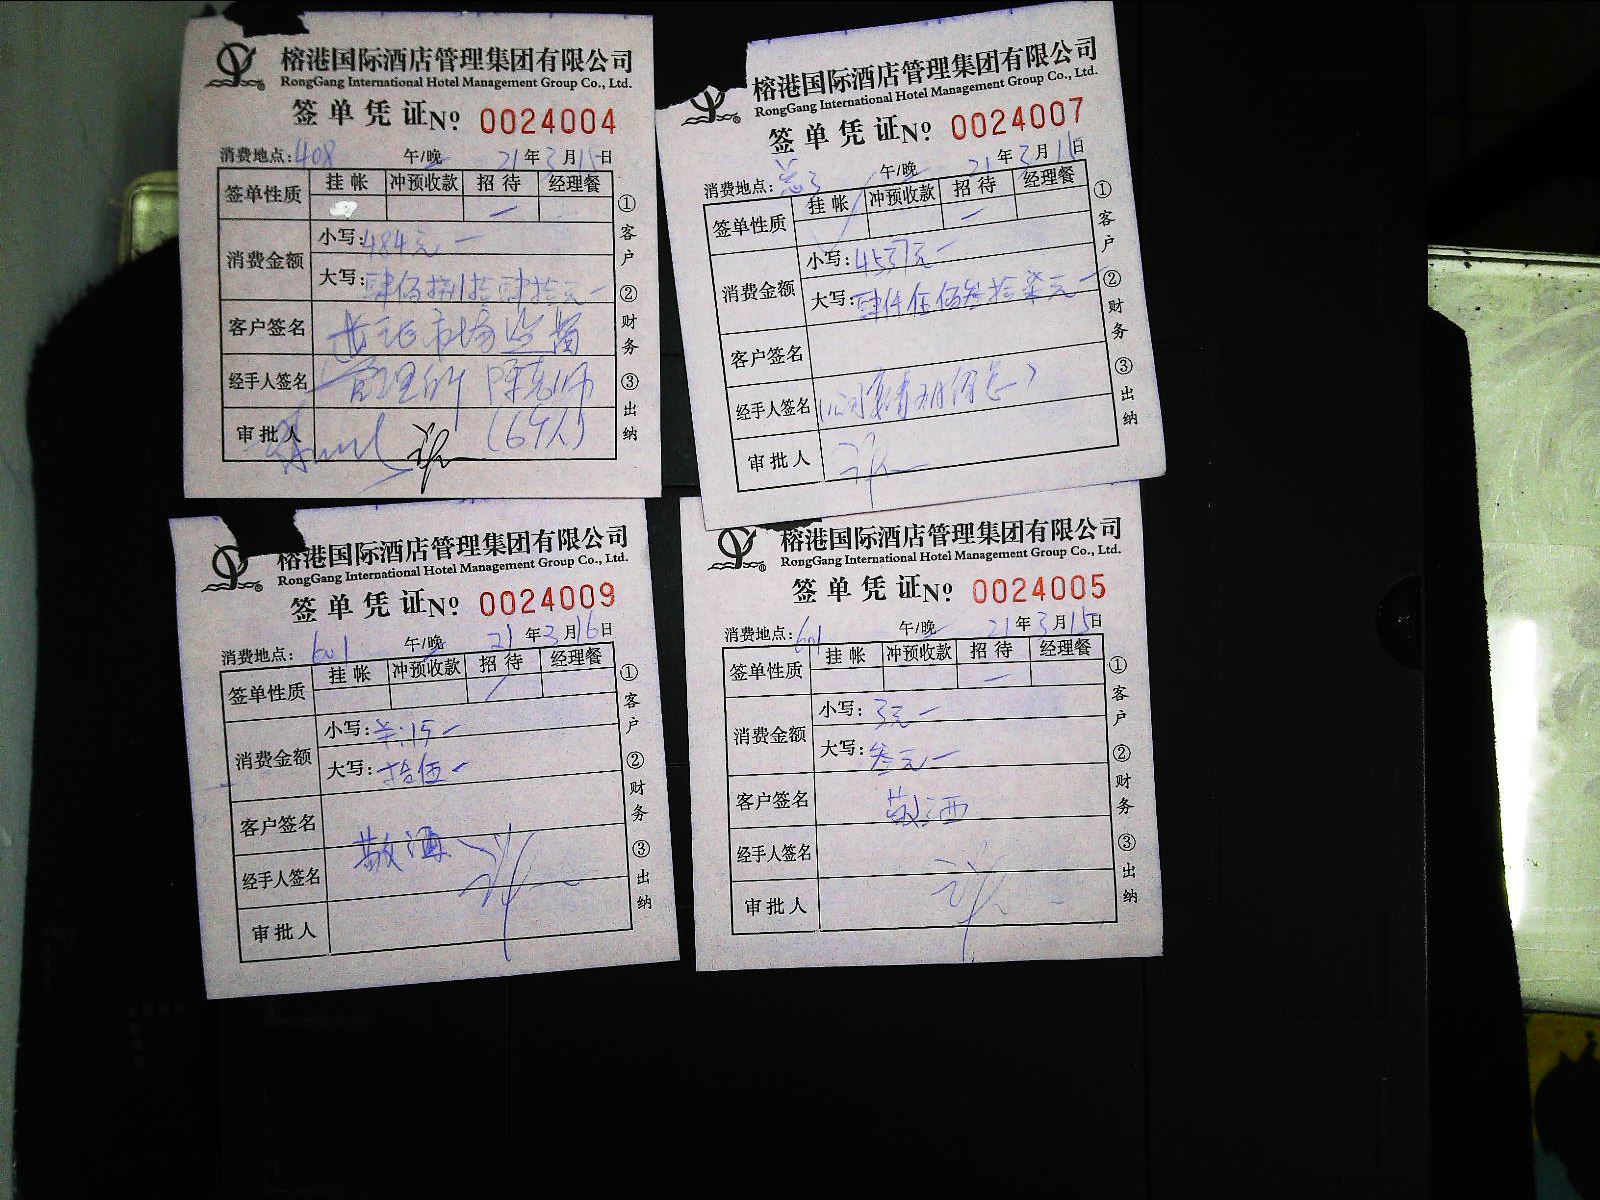 榕港国际酒店管理集团有限公司
RongGang International Hotel Management Group Co., Ltd.
签单凭证 № 0024004
消费地点:408 午/晚 21年3月15日
签单性质 挂帐 冲预收款 招待 经理餐
消费金额 小写:484元
大写:
客户签名 市场监督
经手人签名 管理所 陈老师
审批人
①客户 ②财务 ③出纳
榕港国际酒店管理集团有限公司
RongGang International Hotel Management Group Co., Ltd.
签单凭证 № 0024007
消费地点: 午/晚 21年3月15日
签单性质 挂帐 冲预收款 招待 经理餐
消费金额 小写:4537元
大写:肆仟伍佰叁拾柒元
客户签名
经手人签名
审批人
①客户 ②财务 ③出纳
榕港国际酒店管理集团有限公司
RongGang International Hotel Management Group Co., Ltd.
签单凭证 № 0024009
消费地点:601 午/晚 21年3月16日
签单性质 挂帐 冲预收款 招待 经理餐
消费金额 小写:￥:15
大写:拾伍
客户签名
敬酒
经手人签名
审批人
①客户 ②财务 ③出纳
榕港国际酒店管理集团有限公司
RongGang International Hotel Management Group Co., Ltd.
签单凭证 № 0024005
消费地点:601 午/晚 21年3月15日
签单性质 挂帐 冲预收款 招待 经理餐
消费金额 小写:3元
大写:叁元
客户签名 敬酒
经手人签名
审批人
①客户 ②财务 ③出纳